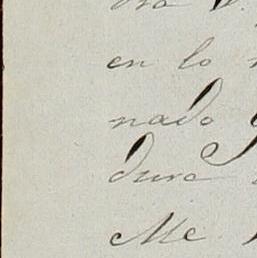 en lo
nado
dura
Me